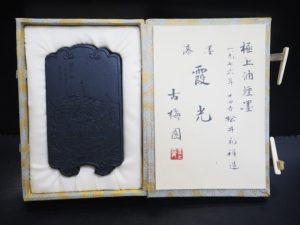 極上油煙墨
一九七六年 十四才 松井元祥造
墨
霞光
古梅園